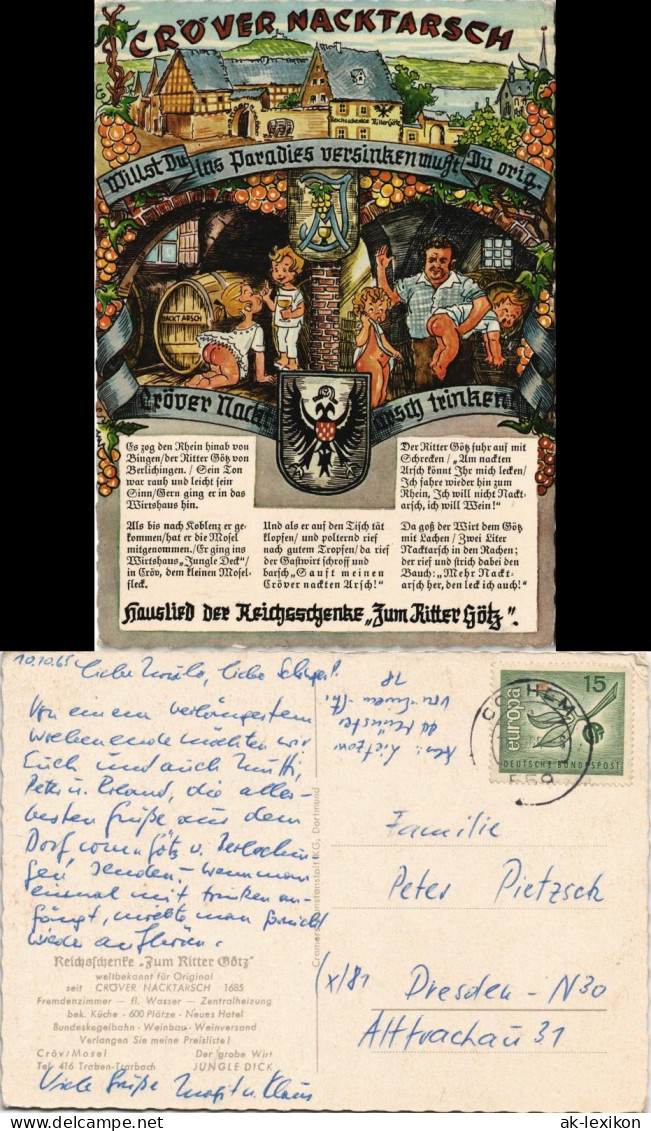 CRÖVER NACKTARSCH
Reichsschenke Ritter Götz
Willst Du ins Paradies versinken mußt Du orig.
NACKTARSCH
Cröver Nacktarsch trinken
Es zog den Rhein hinab von
Bingen/der Ritter Götz von
Berlichingen. / Sein Ton
war rauh und leicht sein
Sinn/Gern ging er in das
Wirtshaus hin.
Als bis nach Koblenz er ge-
kommen/hat er die Mosel
mitgenommen./Er ging ins
Wirtshaus „Jungle Deck“/
in Cröv, dem kleinen Mosel-
fleck.
Und als er auf den Tisch tät
klopfen/ und polternd rief
nach gutem Tropfen/da rief
der Gastwirt schroff und
barsch „Sauft meinen
Cröver nackten Arsch!“
Der Ritter Götz fuhr auf mit
Schrecken / „Am nackten
Arsch könnt Ihr mich lecken/
Ich fahre wieder hin zum
Rhein, Ich will nicht Nackt-
arsch, ich will Wein!“
Da goß der Wirt dem Götz
mit Lachen / Zwei Liter
Nacktarsch in den Rachen;
der rief und strich dabei den
Bauch: „Mehr Nackt-
arsch her, den leck ich auch!“
Hauslied der Reichsschenke „Zum Ritter Götz“.
10.10.65
Von einem verlängertem
Wochenende möchten wir
Euch und auch Mutti,
Peter u. die aller-
besten Grüße aus dem
Dorf vom Götz v. Berlichin-
gen, senden. Wenn man
einmal mit trinken an-
fängt, möchte man
wieder aufhören.
Reichsschenke „Zum Ritter Götz“
weltbekannt für Original
seit CRÖVER NACKTARSCH 1685
Fremdenzimmer — fl. Wasser — Zentralheizung
bek. Küche - 600 Plätze - Neues Hotel
Bundeskegelbahn - Weinbau - Weinversand
Verlangen Sie meine Preisliste!
Cröv/Mosel Der grobe Wirt
Tel. 416 Traben-Trarbach JUNGLE DICK
Viele Grüße u. Klaus
Cramers Kunstanstalt KG, Dortmund
COCHEM
559
europa
15
DEUTSCHE BUNDESPOST
Familie
Peter Pietzsch
(x/81 Dresden - N30
Alttrachau 31
ak-lexikon